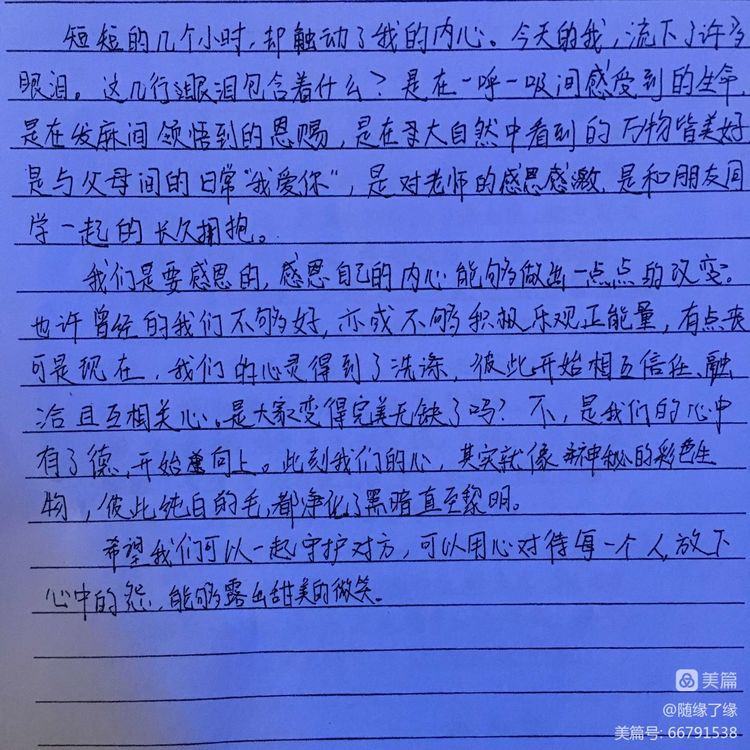 短短的几个小时,却触动了我的内心。今天的我,流下了许多
眼泪。这几行眼泪包含着什么?是在一呼一吸间感受到的生命,
是在发麻间领悟到的恩赐,是在大自然中看到的万物皆美好
是与父母间的日常"我爱你",是对老师的感恩感激,是和朋友同
学一起的长久拥抱。
我们是要感恩的,感恩自己的内心能够做出一点点的改变。
也许曾经的我们不够好,亦或不够积极乐观正能量,有点丧
可是现在,我们的心灵得到了洗涤,彼此开始相互信任、融
洽且互相关心。是大家变得完美无缺了吗?不,是我们的心中
有了德,开始向上。此刻我们的心,其实就像神秘的彩色生
物,彼此纯白的毛,都净化了黑暗直至黎明。
希望我们可以一起守护对方,可以用心对待每一个人,放下
心中的怨,能够露出甜美的微笑。
美篇
@随缘了缘
美篇号: 66791538